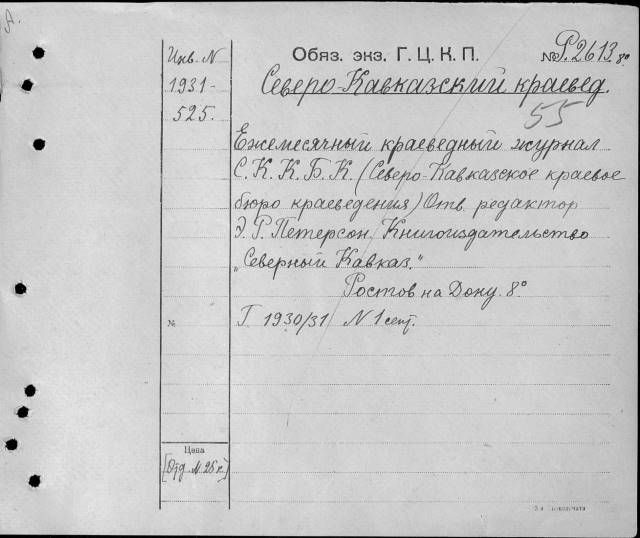 А.
Инв. N
1931-
525.
Обяз. экз. Г. Ц. К. П.
№ Р.2613. 8°
Северо-Кавказский краевед.
55
Ежемесячный краеведный журнал
С. К. К. Б. К. (Северо-Кавказское краевое
бюро краеведения) Отв. редактор
Э. Р. Петерсон. Книгоиздательство
„Северный Кавказ."
Ростов на Дону. 8°
№
Г. 1930/31 N 1 сент.
Цена
[Отд. N. 25 к.]